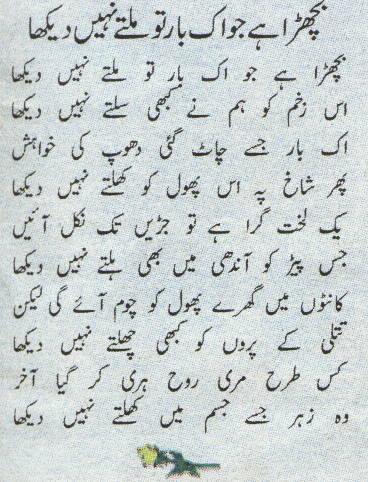 بچھڑا ہے جو اک بار تو ملتے نہیں دیکھا
بچھڑا ہے جو اک بار تو ملتے نہیں دیکھا
اس زخم کو ہم نے کبھی سلتے نہیں دیکھا
اک بار جسے چاٹ گئی دھوپ کی خواہش
پھر شاخ پہ اس پھول کو کھلتے نہیں دیکھا
یک لخت گرا ہے تو جڑیں تک نکل آئیں
جس پیڑ کو آندھی میں بھی ہلتے نہیں دیکھا
کانٹوں میں گھرے پھول کو چوم آئے گی لیکن
تتلی کے پروں کو کبھی چھلتے نہیں دیکھا
کس طرح مری روح ہری کر گیا آخر
وہ زہر جسے جسم میں کھلتے نہیں دیکھا